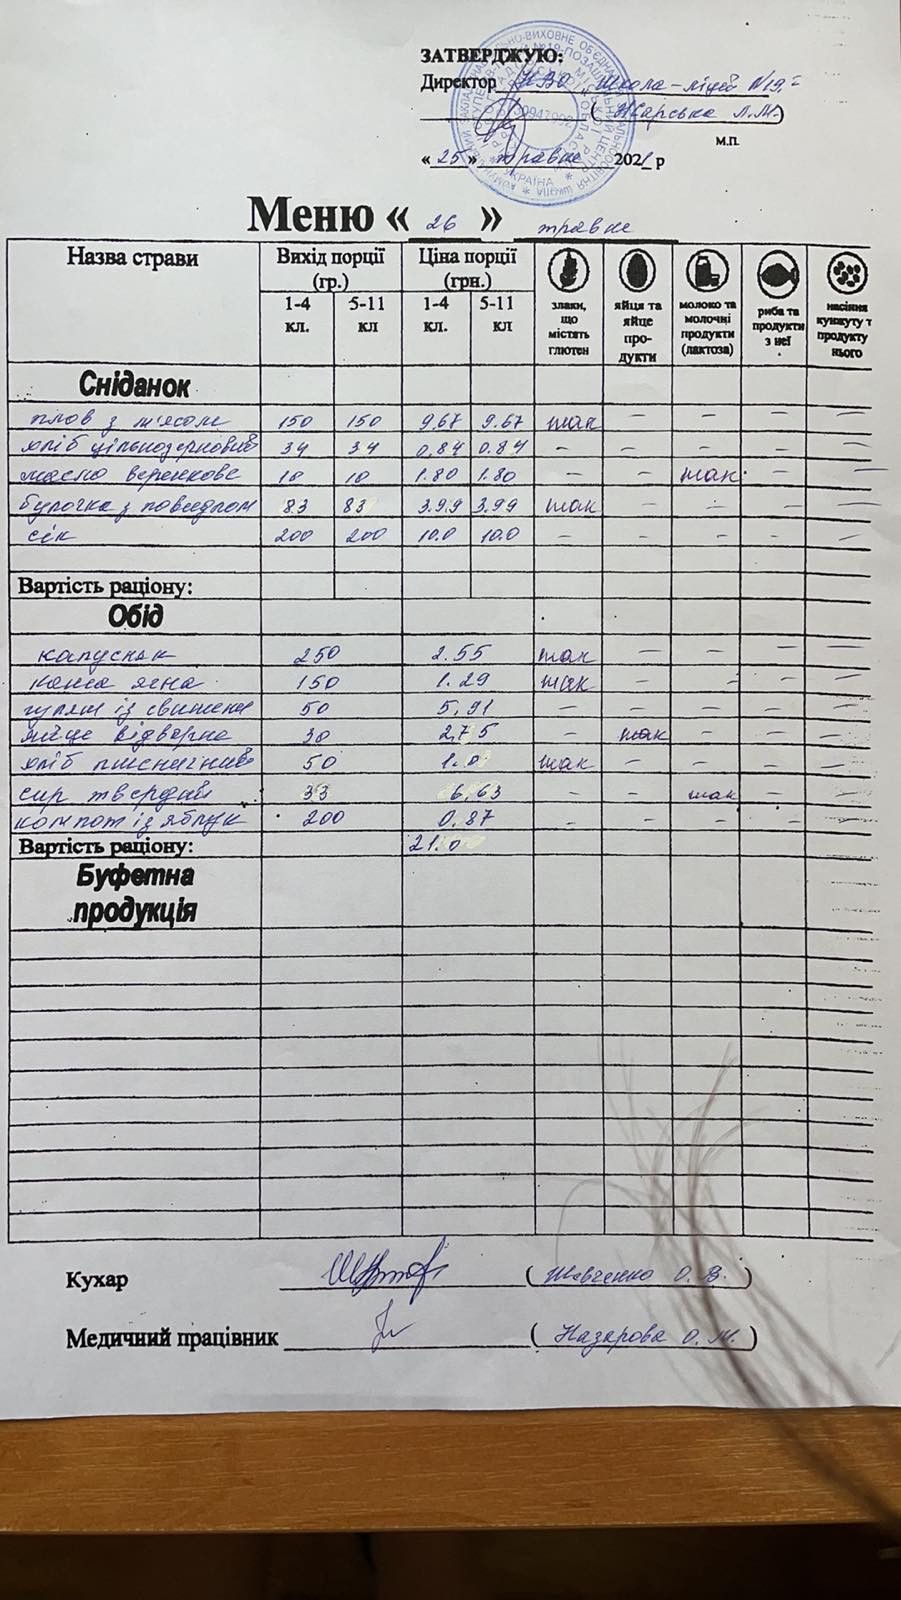 ЗАТВЕРДЖУЮ:
Директор НВО „Школа-ліцей N19"
( Жарська Л.М.)
М.П.
« 25 » травне 2021 р
Меню « 26 » травне
Назва страви Вихід порції (гр.) Ціна порції (грн.) злаки, що містять глютен яйця та яйце про-дукти молоко та молочні продукти (лактоза) риба та продукти з неї насіння кунжуту т продукту нього
1-4 кл. 5-11 кл 1-4 кл. 5-11 кл
Сніданок
плов з м'ясом 150 150 9.67 9.67 так – – – –
хліб цільнозерновий 34 34 0,84 0.84 – – – – –
масло вершкове 10 10 1.80 1.80 – – так – –
булочка з повидлом 83 83 3.99 3.99 так – – – –
сік 200 200 10.0 10.0 – – – – –
Вартість раціону:
Обід
капусняк 250 2.55 так – – – –
каша ячна 150 1.29 так – – – –
гуляш із свинини 50 5,91 – – – – –
яйце відварне 30 2,75 – так – – –
хліб пшеничний 50 1.0 так – – – –
сир твердий 33 6,63 – – так – –
компот із яблук 200 0,87 – – – – –
Вартість раціону: 21.0
Буфетна продукція
Кухар ( Шевченко О. В. )
Медичний працівник ( Назарова О. М. )